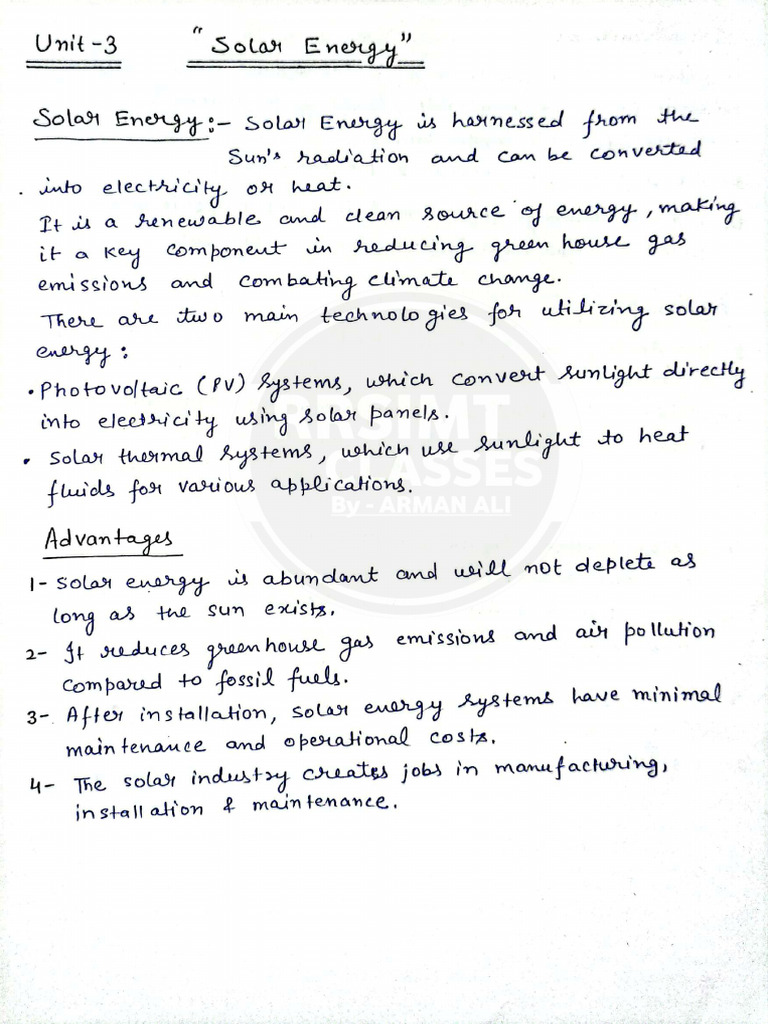 Unit-3 "Solar Energy"
Solar Energy:- Solar Energy is harnessed from the
Sun's radiation and can be converted
into electricity or heat.
It is a renewable and clean source of energy, making
it a key component in reducing green house gas
emissions and combating climate change.
There are two main technologies for utilizing solar
energy:
• Photovoltaic (PV) Systems, which convert sunlight directly
into electricity using solar panels.
• Solar thermal systems, which use sunlight to heat
fluids for various applications.
RRSIMT
CLASSES
By - ARMAN ALI
Advantages
1- Solar energy is abundant and will not deplete as
long as the sun exists.
2- It reduces greenhouse gas emissions and air pollution
compared to fossil fuels.
3- After installation, solar energy systems have minimal
maintenance and operational costs.
4- The solar industry creates jobs in manufacturing,
installation & maintenance.